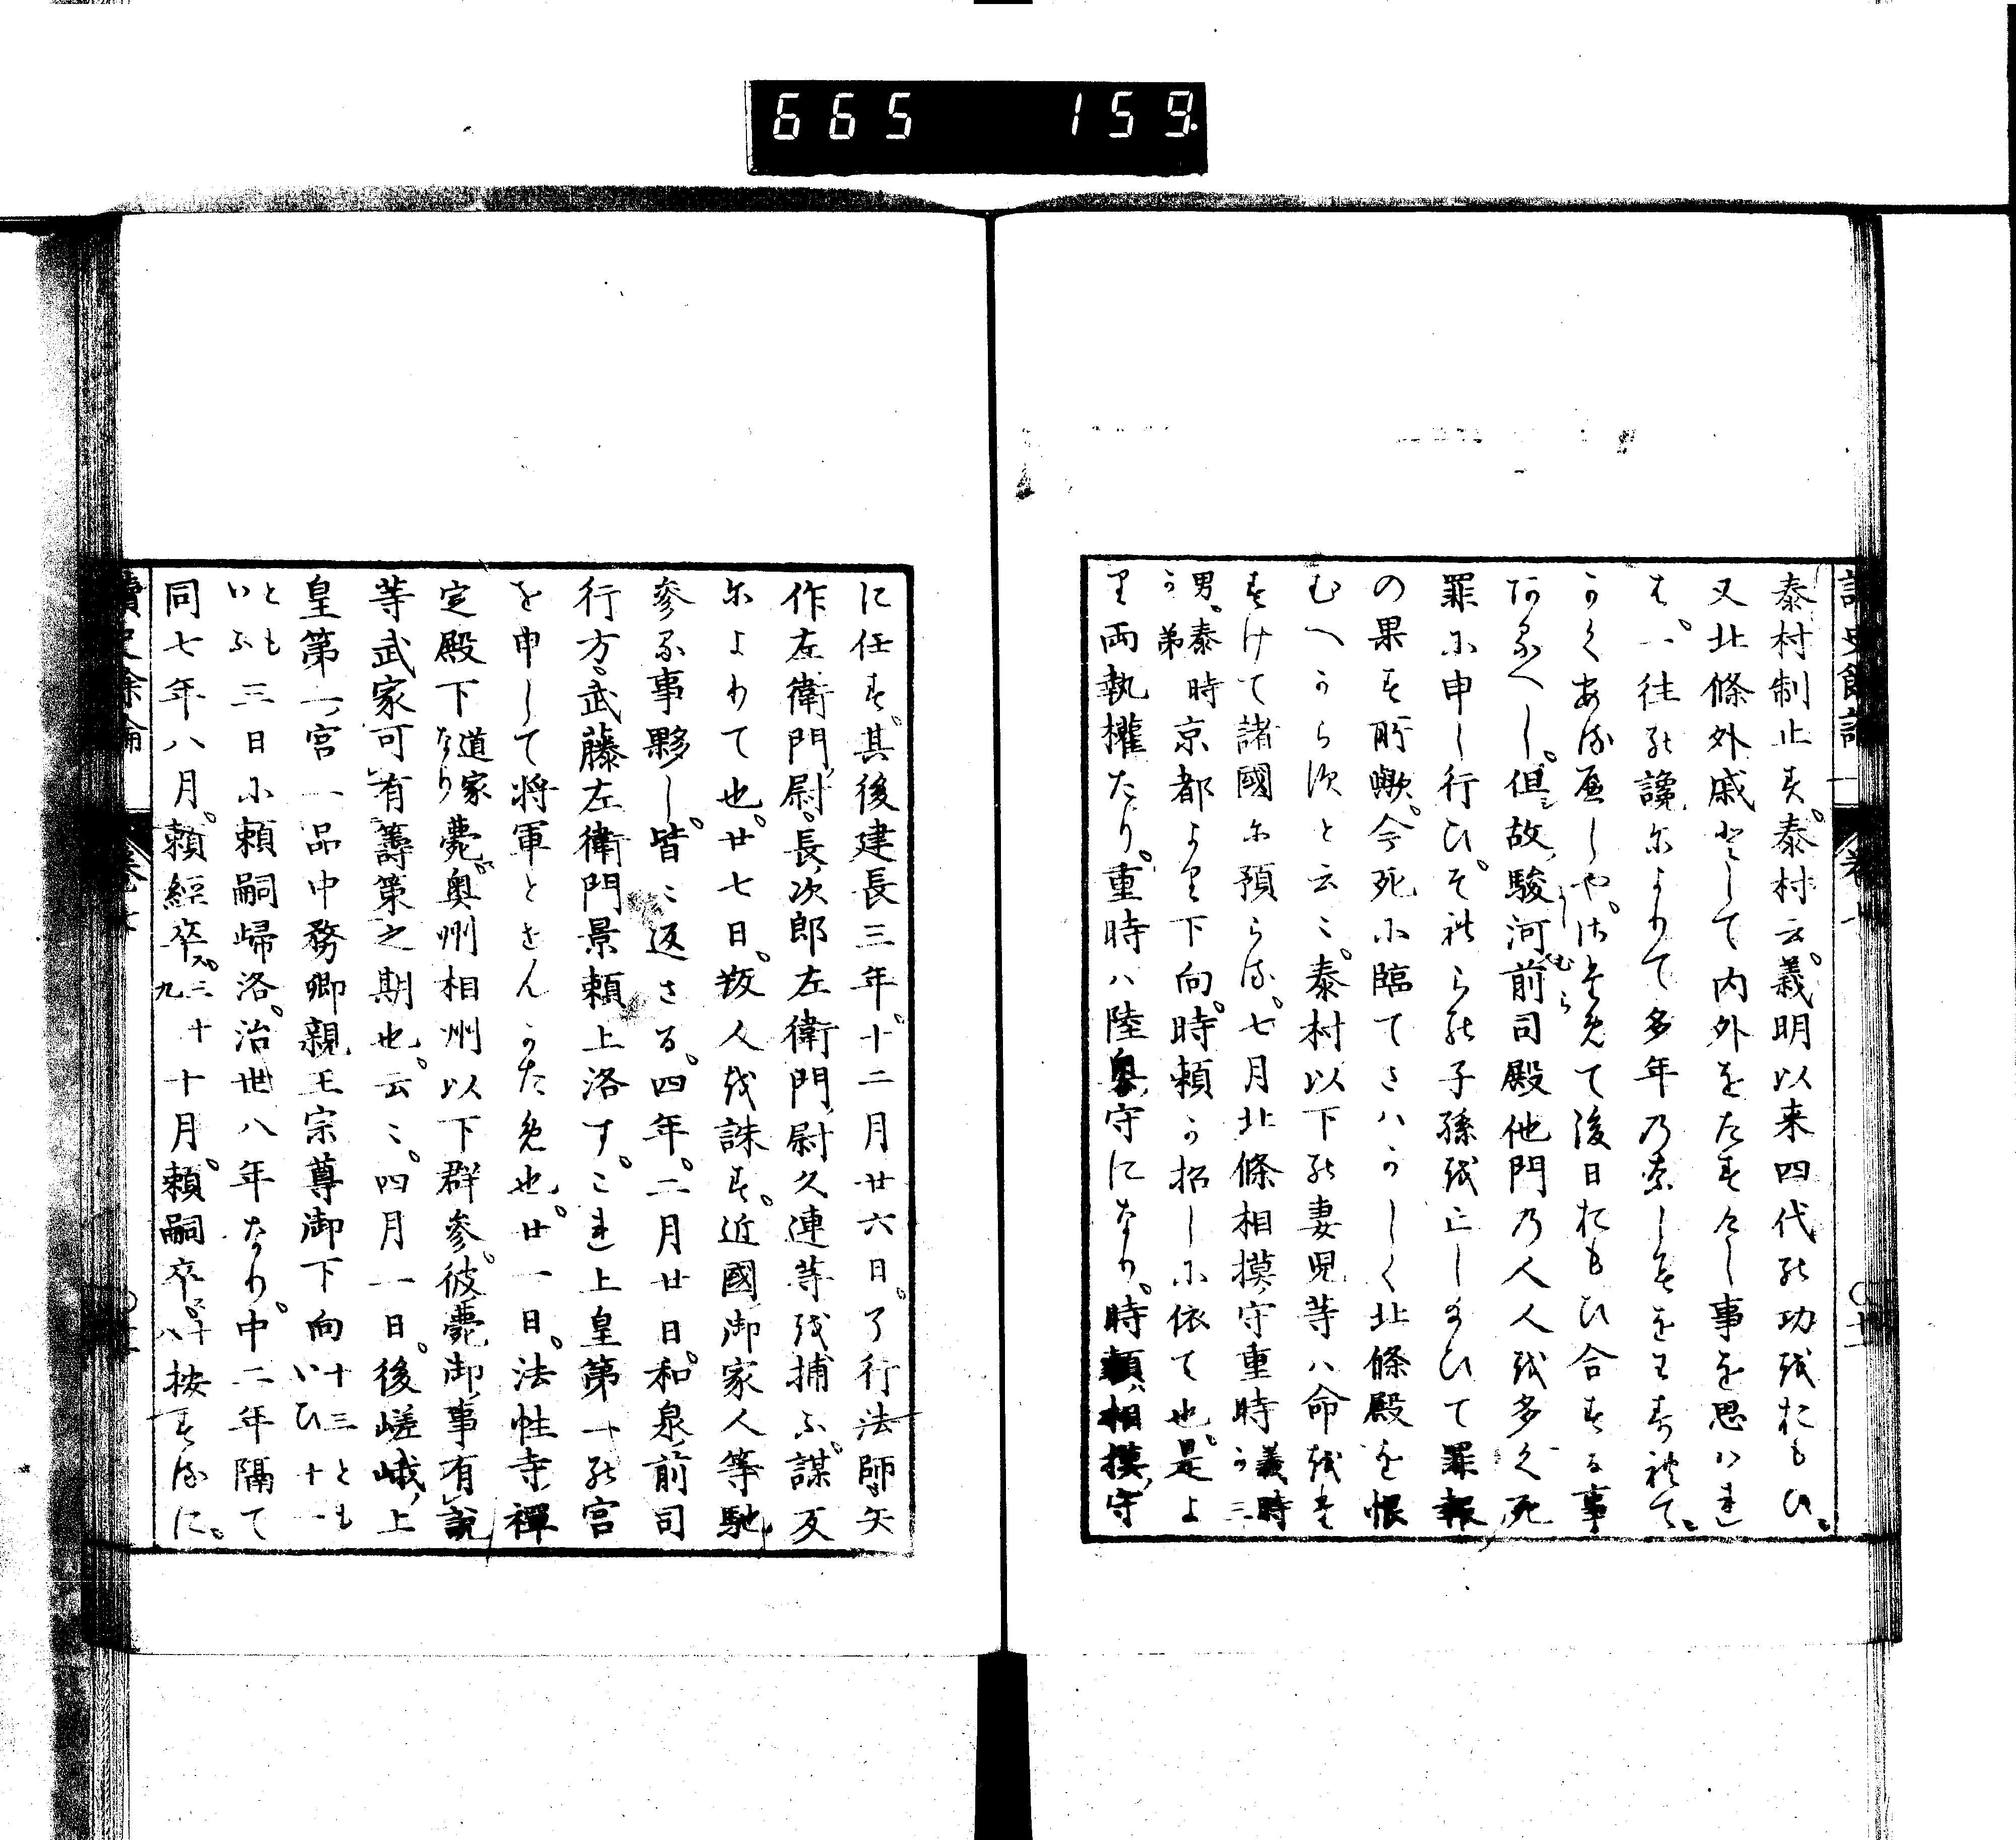 665 159
泰村制止す。泰村云。義明以来四代の功をおもひ。
又北條外戚として内外をたすけし事を思ハれ
は。一往の讒によりて多年の索しをわすれて。
かくある辱しや。さためて後日おもひ合する事
あるへし。但故駿河前司殿他門の人人を多く死
うしむら
罪に申し行ひ。それらの子孫を亡し給ひて罪報
の果す所歟。今死に臨てさハかしく北條殿を恨
むへからすと云〻。泰村以下の妻児等ハ命をた
すけて諸國に預らる。七月北條相摸守重時義時か三
男。泰時か弟京都より下向。時頼か招しに依て也。是よ
り両執權たり。重時ハ陸奥守になり。時頼相摸守
に任す。其後建長三年。十二月廿六日。了行法師矢
作左衛門尉。長次郎左衛門尉久連等を捕ふ。謀反
によりて也。廿七日。叛人を誅す。近國御家人等馳
參る事夥し。皆〻返さる。四年。二月廿日。和泉前司
行方。武藤左衛門景頼上洛す。これ上皇第一の宮
を申して将軍とせんかため也。廿一日。法性寺禪
定殿下道家なり薨。奥州相州以下群參。彼薨御事有説
等武家可有籌策之期也。云〻。四月一日。後嵯峨上
皇第一宮一品中務卿親王宗尊御下向十三ともいひ十一
ともいふ三日に頼嗣帰洛。治世八年なり。中二年隔て
同七年八月。頼經卒。三十九十月。頼嗣卒。十八按するに。
讀史餘論